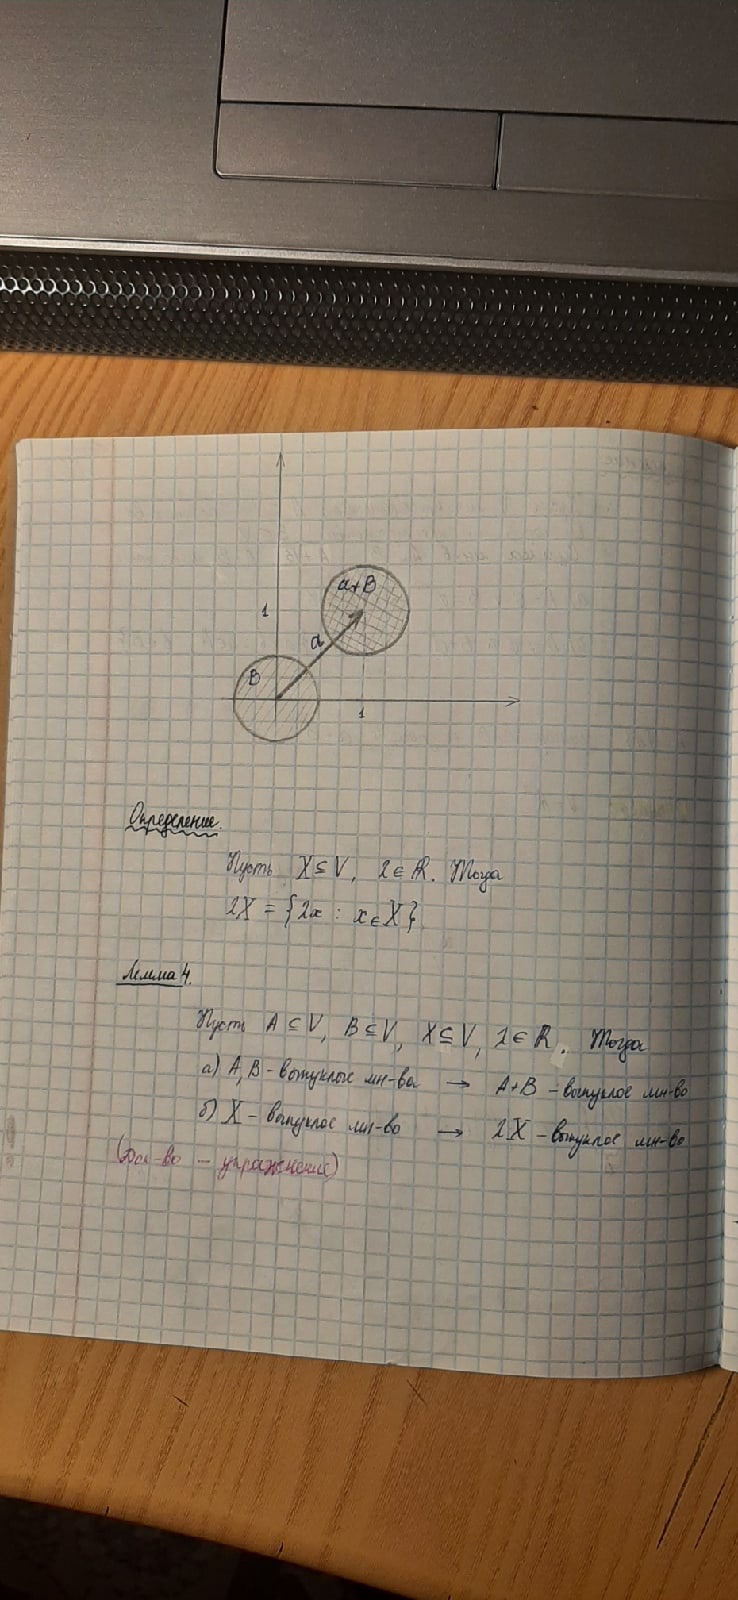 a+B
1
a
B
1
Определение.
Пусть X ⊆ V, λ ∈ ℝ. Тогда
λX = {λx : x ∈ X}.
Лемма 4.
Пусть A ⊆ V, B ⊆ V, X ⊆ V, λ ∈ ℝ. Тогда
а) A, B - выпуклые мн-ва → A+B - выпуклое мн-во
б) X - выпуклое мн-во → λX - выпуклое мн-во
(Док-во - упражнение)